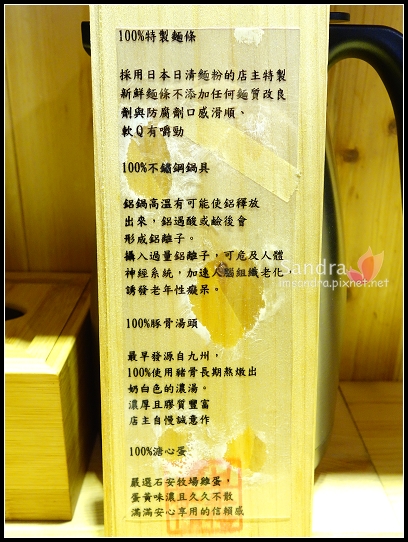 100%特製麵條
採用日本日清麵粉的店主特製
新鮮麵條不添加任何麵質改良
劑與防腐劑口感滑順、
軟Q有嚼勁
100%不鏽鋼鍋具
鋁鍋高溫有可能使鋁釋放
出來,鋁過酸或鹼後會
形成鋁離子。
攝入過量鋁離子,可危及人體
神經系統,加速人腦組織老化
誘發老年性癡呆。
Sandra
imsandra.pixnet.net
100%豚骨湯頭
最早發源自九州,
100%使用豬骨長期熬燉出
奶白色的濃湯。
濃厚且膠質豐富
店主自慢誠意作
100%溏心蛋
嚴選石安牧場雞蛋,
蛋黃味濃且久久不散
滿滿安心享用的信賴感